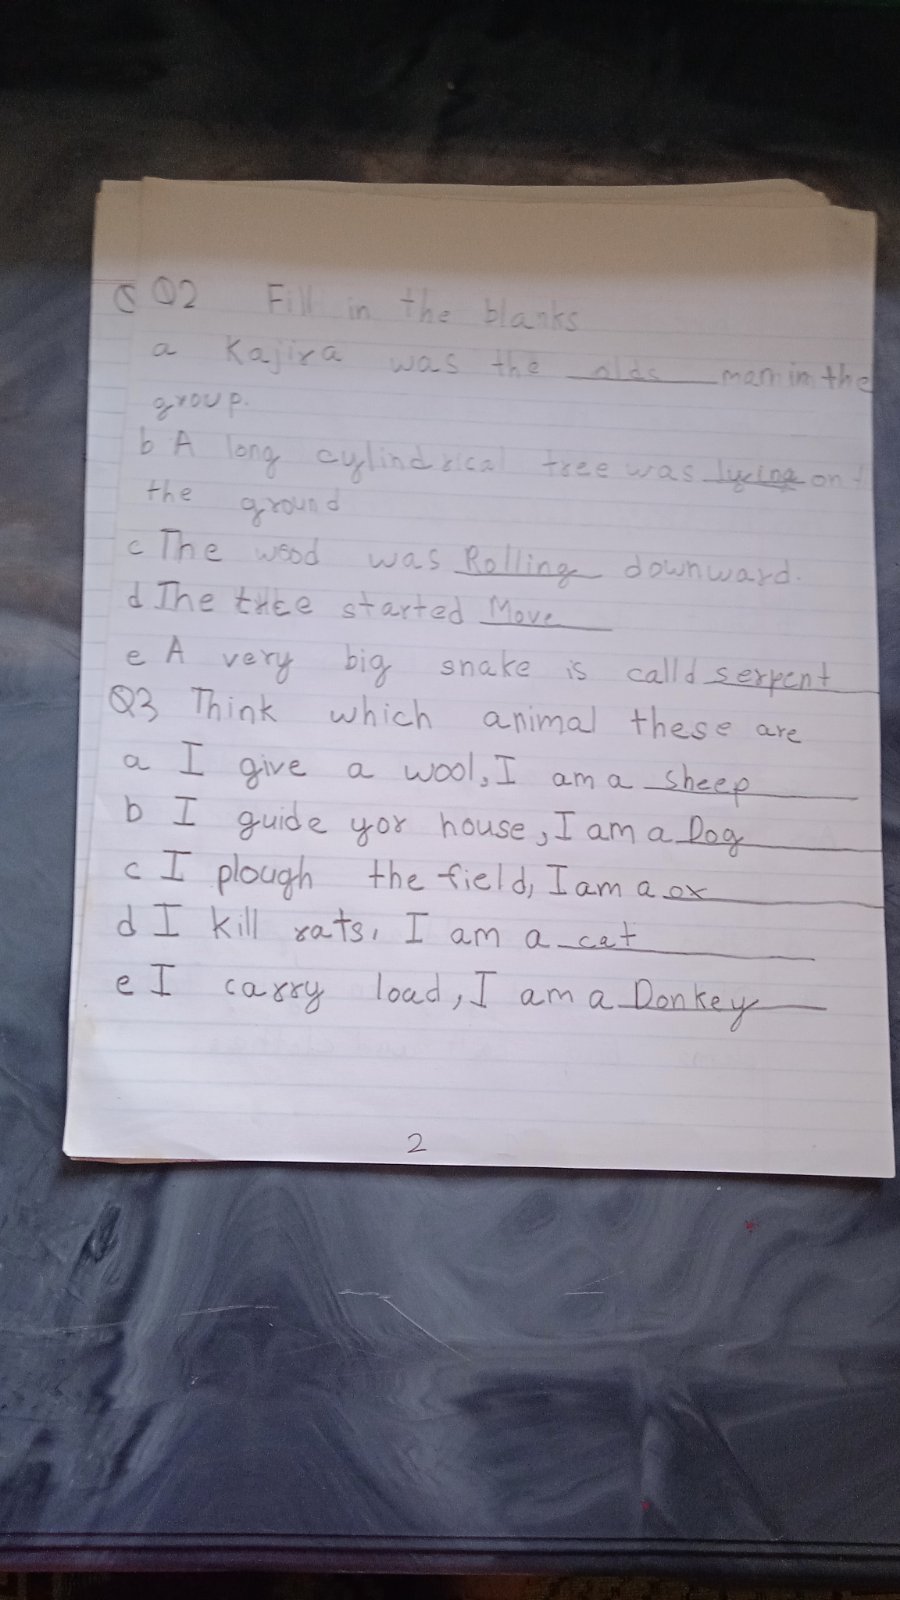 Q2 Fill in the blanks
a Kajira was the olds man in the
group.
b A long cylindrical tree was lying on
the ground
c The wood was Rolling downward.
d The tree started Move
e A very big snake is calld serpent
Q3 Think which animal these are
a I give a wool, I am a sheep
b I guide yor house, I am a Dog
c I plough the field, I am a ox
d I kill rats, I am a cat
e I carry load, I am a Donkey
2